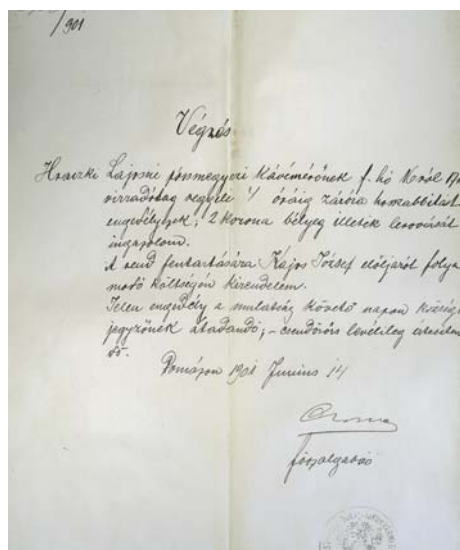 /901
Végzés
Hraczki Lajosné pósmegyeri kávémérőnek f. hó 16ról 17re
virradólag reggeli 4 óráig záróra hosszabbitást
engedélyezek; 2 korona bélyeg illeték lerovását
igazolom.
A rend fentartására Kajos József előljárót folya
modó költségén kirendelem.
Jelen engedély a mulatság követő napon községi
jegyzőnek átadandó; – csendőrörs levélileg értesitte
tik.
Pomázon 1901 Junius 14
főszolgabiró